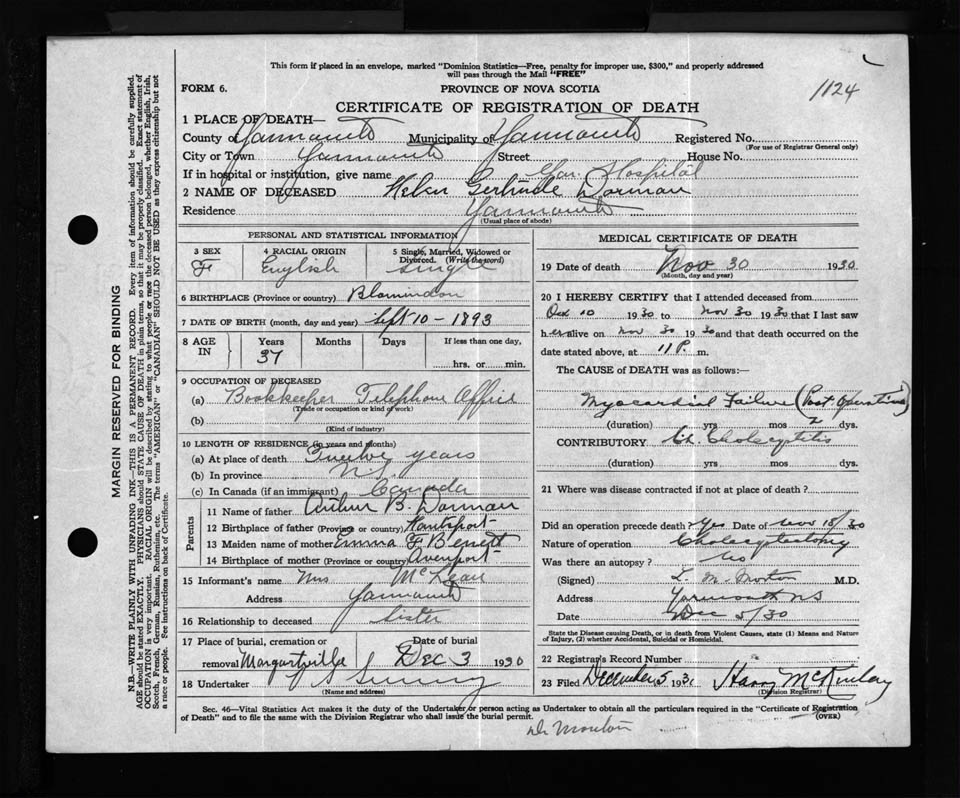 This form if placed in an envelope, marked "Dominion Statistics—Free, penalty for improper use, $300," and properly addressed
will pass through the Mail "FREE"
FORM 6.
PROVINCE OF NOVA SCOTIA
1124
CERTIFICATE OF REGISTRATION OF DEATH
1 PLACE OF DEATH—
County of Yarmouth Municipality of Yarmouth Registered No.
(For use of Registrar General only)
City or Town Yarmouth Street House No.
If in hospital or institution, give name Gen. Hospital
2 NAME OF DECEASED Helen Gertrude Dorman
Residence Yarmouth
(Usual place of abode)
PERSONAL AND STATISTICAL INFORMATION
3 SEX 4 RACIAL ORIGIN 5 Single, Married, Widowed or Divorced. (Write the word)
F English Single
6 BIRTHPLACE (Province or country) Blomindon
7 DATE OF BIRTH (month, day and year) Sept 10 - 1893
8 AGE IN Years Months Days If less than one day,
37 hrs. or min.
9 OCCUPATION OF DECEASED
(a) Bookkeeper Telephone Office
(Trade or occupation or kind of work)
(b)
(Kind of industry)
10 LENGTH OF RESIDENCE (in years and months)
(a) At place of death Twelve years
(b) In province
(c) In Canada (if an immigrant) Canada
Parents
11 Name of father Arthur B. Dorman
12 Birthplace of father (Province or country) Hantsport
13 Maiden name of mother Emma F Benett
14 Birthplace of mother (Province or country) Avonport
15 Informant's name Mrs McLean
Address Yarmouth
16 Relationship to deceased Sister
17 Place of burial, cremation or Date of burial
removal Margartville Dec 3 1930
18 Undertaker
(Name and address)
MEDICAL CERTIFICATE OF DEATH
19 Date of death Nov 30 1930
(Month, day and year)
20 I HEREBY CERTIFY that I attended deceased from
Oct 10 1930 to Nov 30 1930 that I last saw
her alive on Nov 30 1930 and that death occurred on
date stated above, at 11 P. m.
The CAUSE of DEATH was as follows:—
Myocardial Failure (Post Operative)
(duration) yrs mos 2 dys.
CONTRIBUTORY Ch. Cholecystitis
(duration) yrs mos dys.
21 Where was disease contracted if not at place of death?
Did an operation precede death? Yes Date of Nov 18/30
Nature of operation Cholecystectomy
Was there an autopsy? No
(Signed) L. M. Morton M.D.
Address Yarmouth NS
Date Dec 5/30
State the Disease causing Death, or in death from Violent Causes, state (1) Means and Nature
of Injury, (2) whether Accidental, Suicidal or Homicidal.
22 Registrar's Record Number
23 Filed December 5 193 Harry McKinlay
(Division Registrar)
Sec. 46—Vital Statistics Act makes it the duty of the Undertaker or person acting as Undertaker to obtain all the particulars required in the "Certificate of Registration
of Death" and to file the same with the Division Registrar who shall issue the burial permit.
(OVER)
Dr Morton
MARGIN RESERVED FOR BINDING
N.B.—WRITE PLAINLY WITH UNFADING INK—THIS IS A PERMANENT RECORD. Every item of information should be carefully supplied.
AGE should be stated EXACTLY. PHYSICIANS should STATE CAUSE OF DEATH in plain terms, so that it may be properly classified. Exact statement of
OCCUPATION is very important. RACIAL ORIGIN will be described by stating to what people or race the deceased person belonged, whether English, Irish,
Scotch, French, German, Russian, Ruthenian, etc. The terms "AMERICAN" or "CANADIAN" SHOULD NOT BE USED as they express citizenship but not
a race or people. See instructions on back of Certificate.